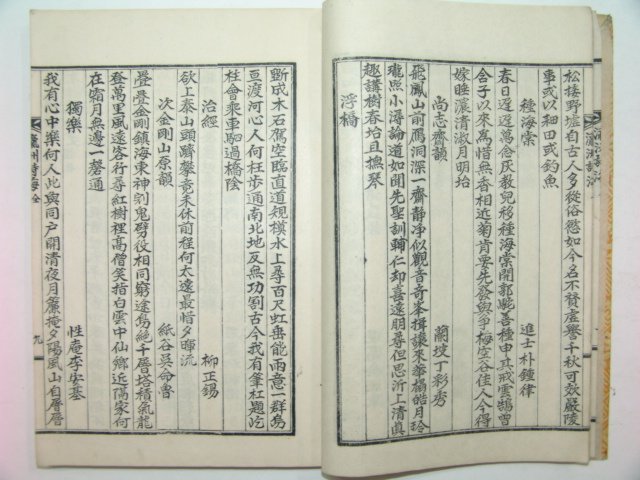 松楼野墟自古人多從俗慾如今名不賛虛譽千秋可效嚴陵
事或以耕田或釣魚
種海棠
進士朴鍾律
春日遅遅萬念灰教兒移種海棠開郭駝善種中真戒雲鵠曾
含予以來爲惜無香相近菊肯要先發與爭梅空谷佳人今得
嫁睡濃清漵月明坮
尚志齋韻
蘭坡丁彩秀
飛鳳山前鴈洞深一齋靜淨似觀音奇峯揖讓來華榻皓月玲
瓏照小潯論道如聞先聖訓輔仁却喜遠朋尋但思沂上清眞
趣講樹春坮且撫琴
浮橋
斲成木石駕空臨直道規模水上尋百尺虹垂能兩意一群烏
亘渡河心人何枉步通南北地反無功割古今我有筆杠題訖
柱會乘車駟過橋陰
治經
柳正錫
欲上泰山頭躋攀竟未休前程何太遠最惜夕暉流
次金剛山原韻
紙谷吳命魯
疊疊金剛鎮海東神剜鬼劈役相同窮途鳥絶千層塔積氣龍
登萬里風遠客行尋紅樹裡高僧笑指白雲中仙鄉近隔家何
在霜月無邊一磬通
獨樂
性庵李宏基
我有心中樂何人此與同戶開清夜月簾捲夕陽風山自層層
瀛州詩海全
九